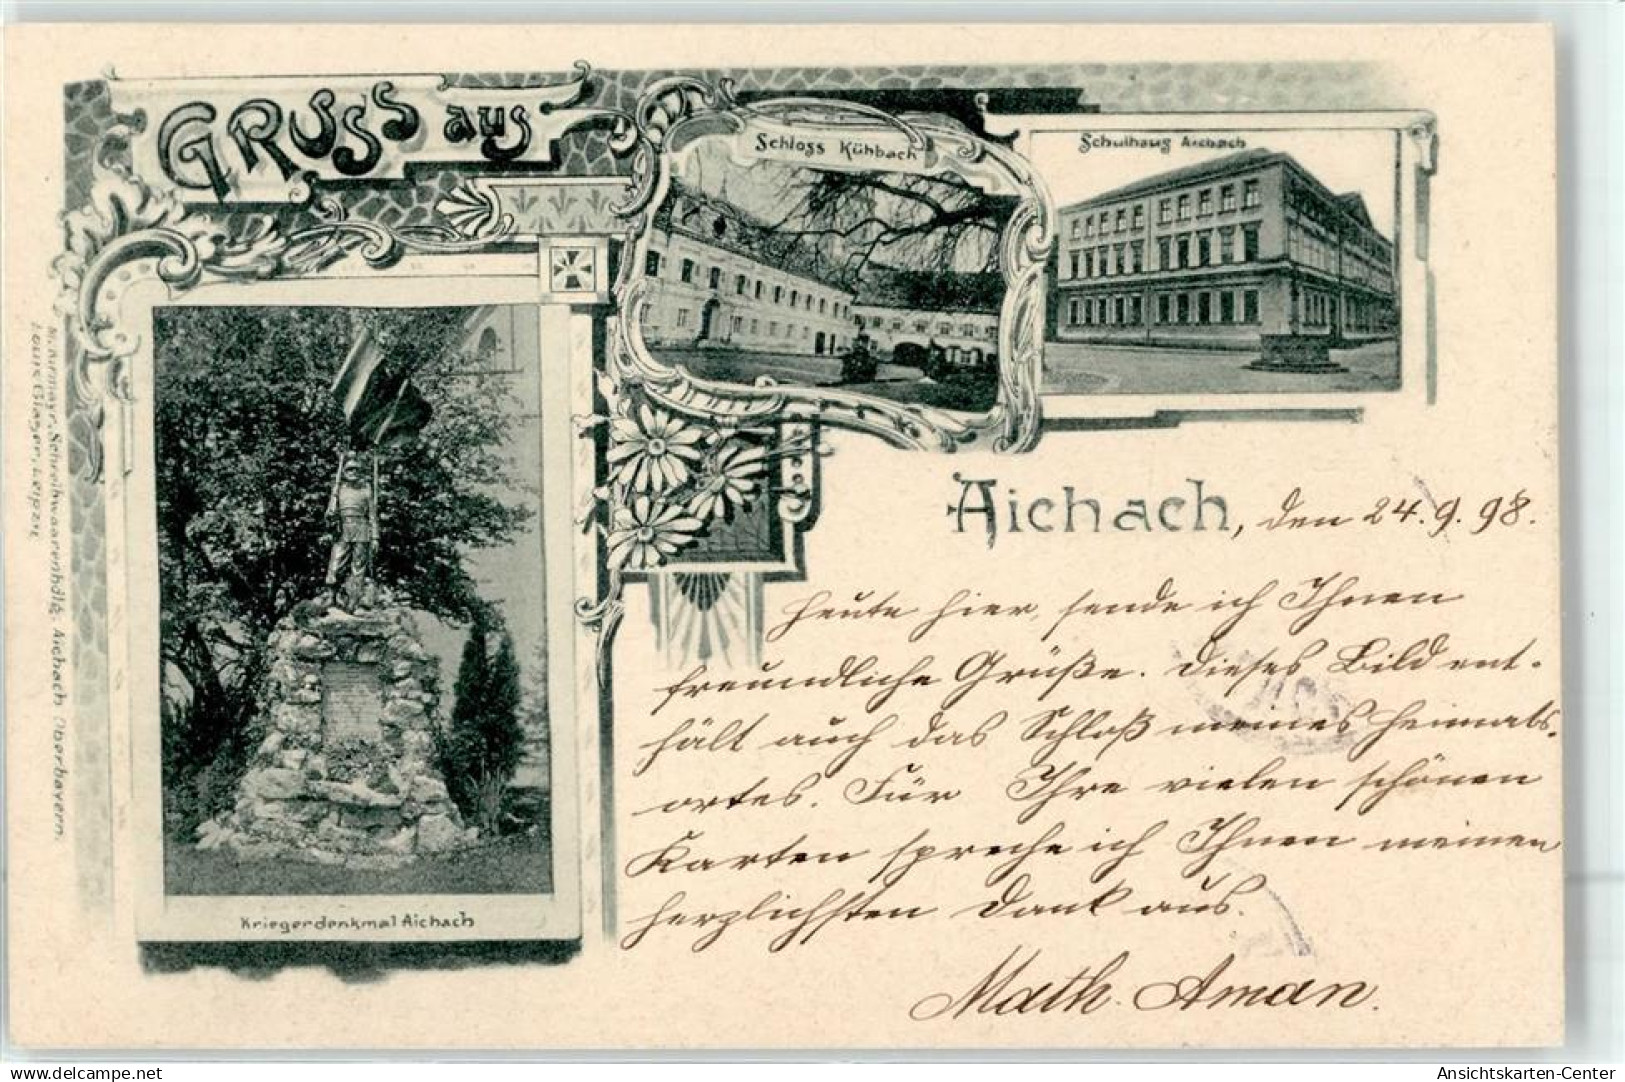 GRUSS aus
Schloss Kühbach
Schulhaus Aichach
Kriegerdenkmal Aichach
Schreibwaarenhdlg. Aichach Oberbayern.
Louis Glaser, Leipzig.
Aichach, den 24.9.98.
Heute hier, sende ich Ihnen
freundliche Grüße. Dieses Bild ent-
hält auch das Schloß meines Heimats-
ortes. Für Ihre vielen schönen
Karten spreche ich Ihnen meinen
herzlichsten Dank aus.
Math. Aman.
delcampe.net
Ansichtskarten-Center